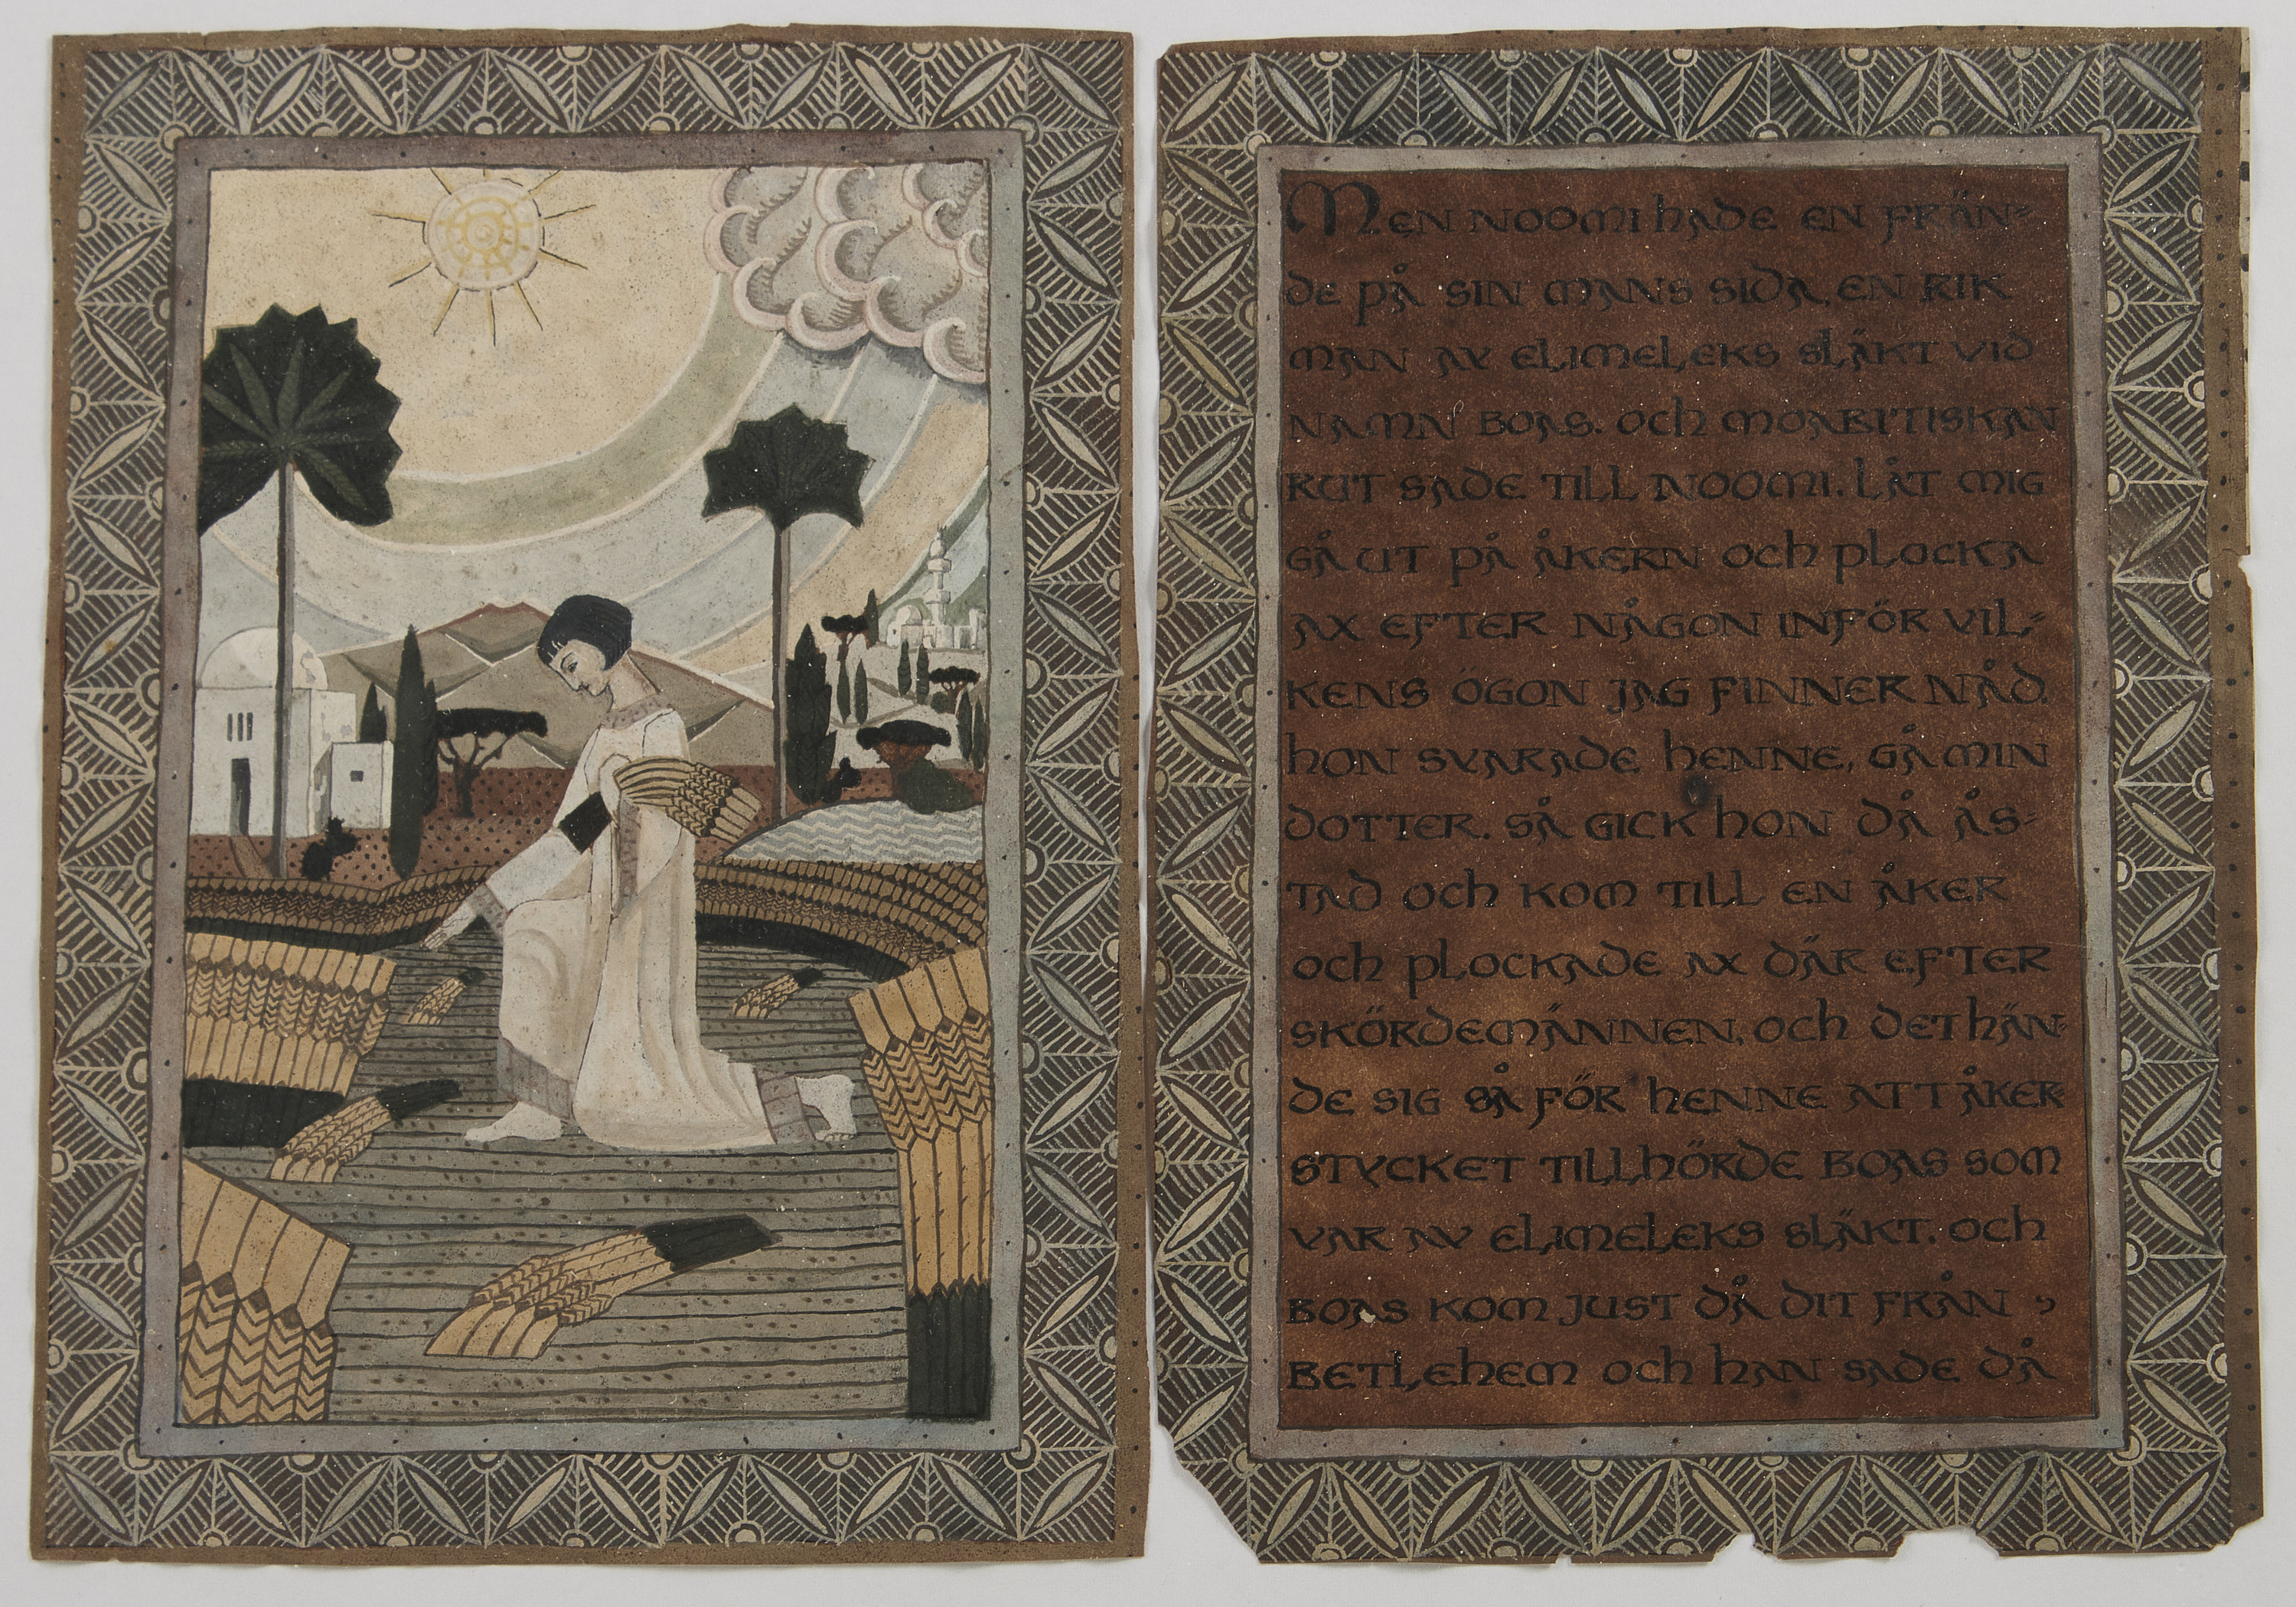 MEN NOOMI HADE EN FRÄN=
DE PÅ SIN MANS SIDA, EN RIK
MAN AV ELIMELEKS SLÄKT VID
NAMN BOAS. OCH MOABITISKAN
RUT SADE TILL NOOMI. LÅT MIG
GÅ UT PÅ ÅKERN OCH PLOCKA
AX EFTER NÅGON INFÖR VIL=
KENS ÖGON JAG FINNER NÅD.
HON SVARADE HENNE, GÅ MIN
DOTTER. SÅ GICK HON DÅ ÅS=
TAD OCH KOM TILL EN ÅKER
OCH PLOCKADE AX DÄR EFTER
SKÖRDEMÄNNEN, OCH DET HÄN=
DE SIG SÅ FÖR HENNE ATT ÅKER=
STYCKET TILLHÖRDE BOAS SOM
VAR AV ELIMELEKS SLÄKT. OCH
BOAS KOM JUST DÅ DIT FRÅN
BETLEHEM OCH HAN SADE DÅ